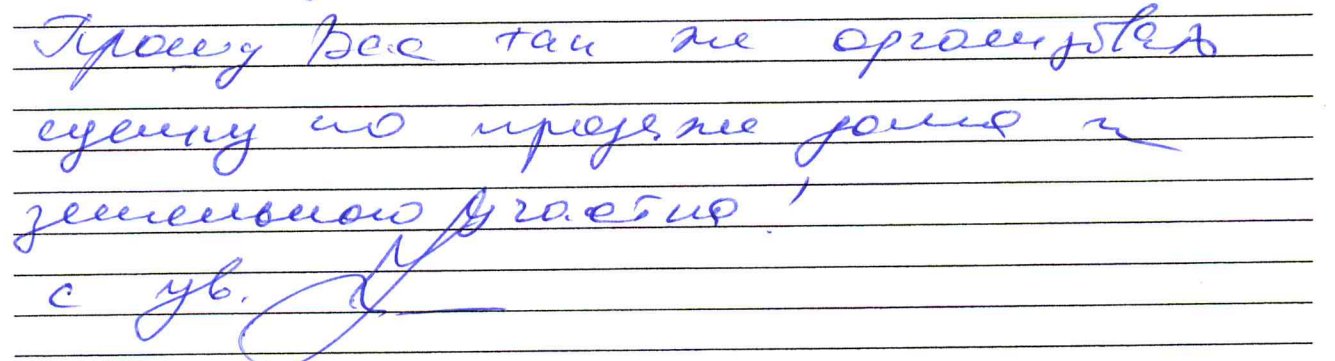 Прошу Вас так же организовать
сделку по продаже дома и
земельного участка!
с ув.